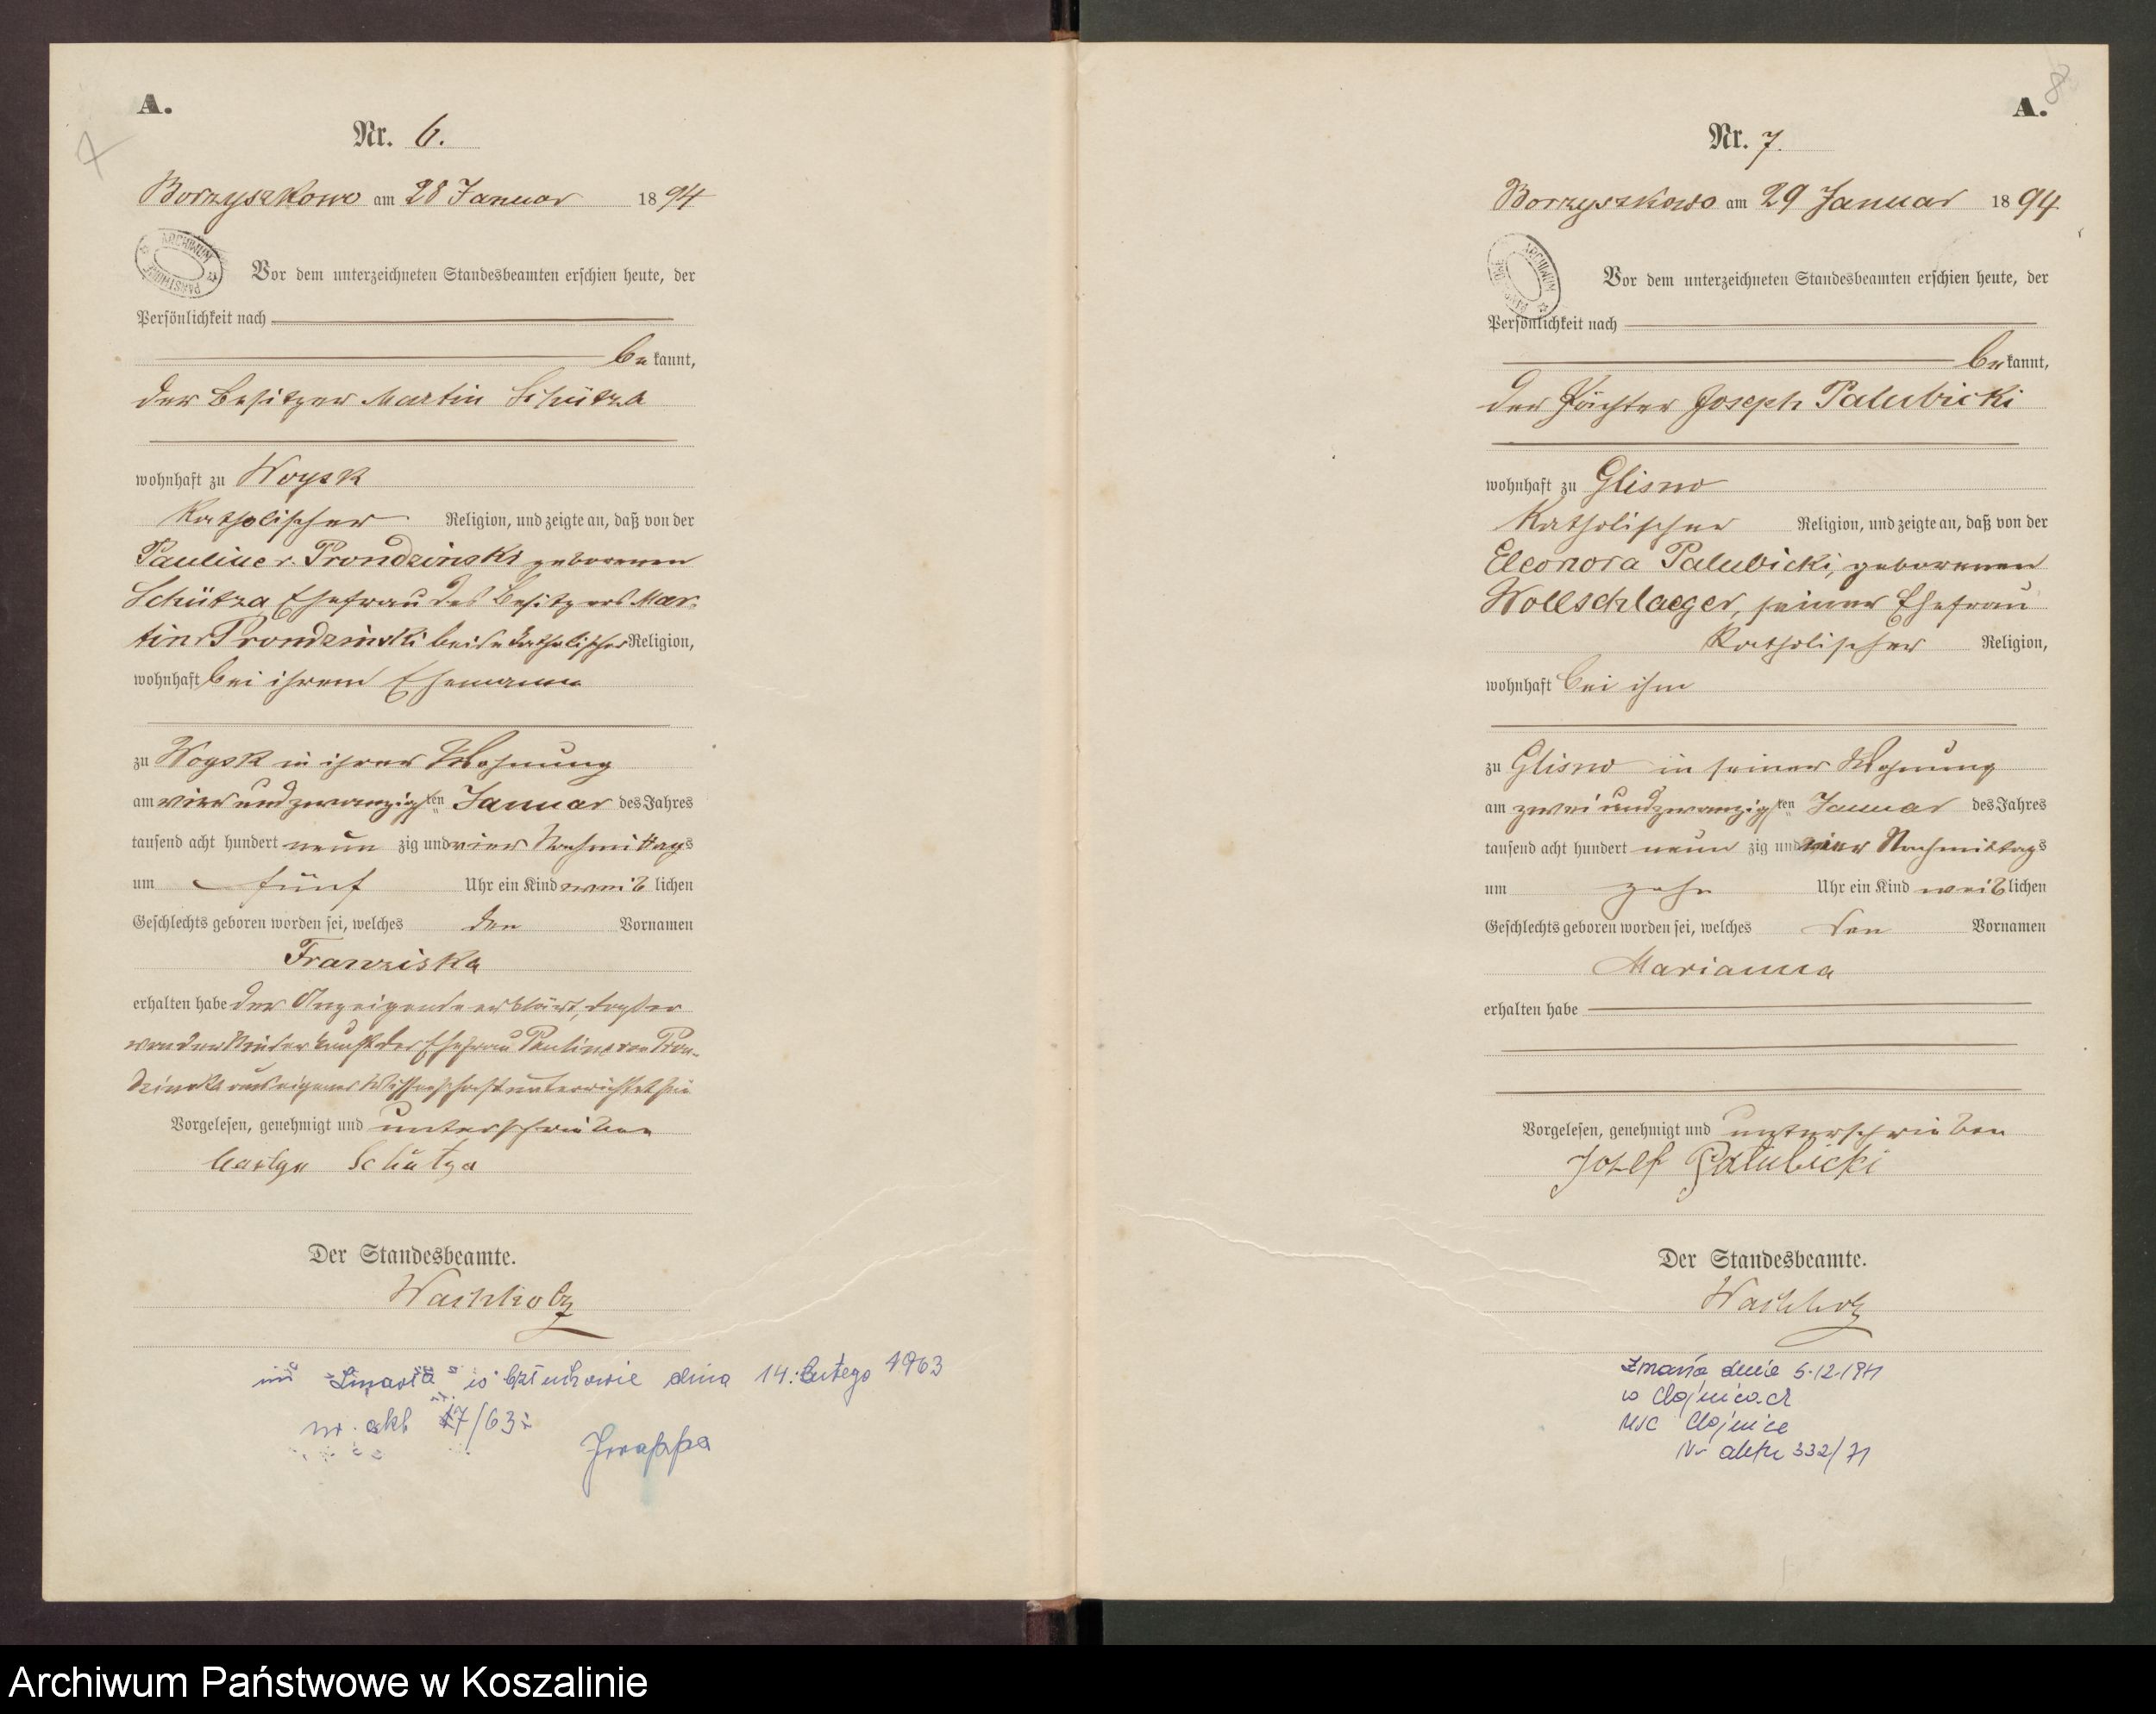 A.
7
Nr. 6.
Borzyszkowo am 28 Januar 1894
ARCHIWUM
Vor dem unterzeichneten Standesbeamten erschien heute, der
Persönlichkeit nach
bekannt,
der Besitzer Martin Schütza
wohnhaft zu Woysk
Katholischer Religion, und zeigte an, daß von der
Pauline v. Prondzinski geborenen
Schütza, Ehefrau des Besitzers Mar-
tin v Prondzinski beide katholischer Religion,
wohnhaft bei ihrem Ehemanne
zu Woysk in ihrer Wohnung
am vier und zwanzigsten Januar des Jahres
tausend acht hundert neunzig und vier Nachmittags
um fünf Uhr ein Kind weiblichen
Geschlechts geboren worden sei, welches den Vornamen
Franziska
erhalten habe der Anzeigende erklärt, daß er
von der Niederkunft der Ehefrau Pauline von Pron-
dzinski aus eigener Wissenschaft unterrichtet sei
Vorgelesen, genehmigt und unterschrieben
Schütza
Der Standesbeamte.
Wachholz
Zmarła w Człuchowie dnia 14. Lutego 1963
nr. akt 17/63
A.
8
Nr. 7.
Borzyszkowo am 29 Januar 1894
ARCHIWUM
Vor dem unterzeichneten Standesbeamten erschien heute, der
Persönlichkeit nach
bekannt,
der Pächter Joseph Palubicki
wohnhaft zu Glisno
Katholischer Religion, und zeigte an, daß von der
Eleonora Palubicki, geborenen
Wollschlaeger, seiner Ehefrau
Katholischer Religion,
wohnhaft bei ihm
zu Glisno in seiner Wohnung
am zwei und zwanzigsten Januar des Jahres
tausend acht hundert neunzig und vier Nachmittags
um zehn Uhr ein Kind weiblichen
Geschlechts geboren worden sei, welches den Vornamen
Marianna
erhalten habe
Vorgelesen, genehmigt und unterschrieben
Jozef Palubicki
Der Standesbeamte.
Wachholz
Zmarła dnia 5.12.1971
w Chojnicach
USC Chojnice
Nr aktu 332/71
Archiwum Państwowe w Koszalinie